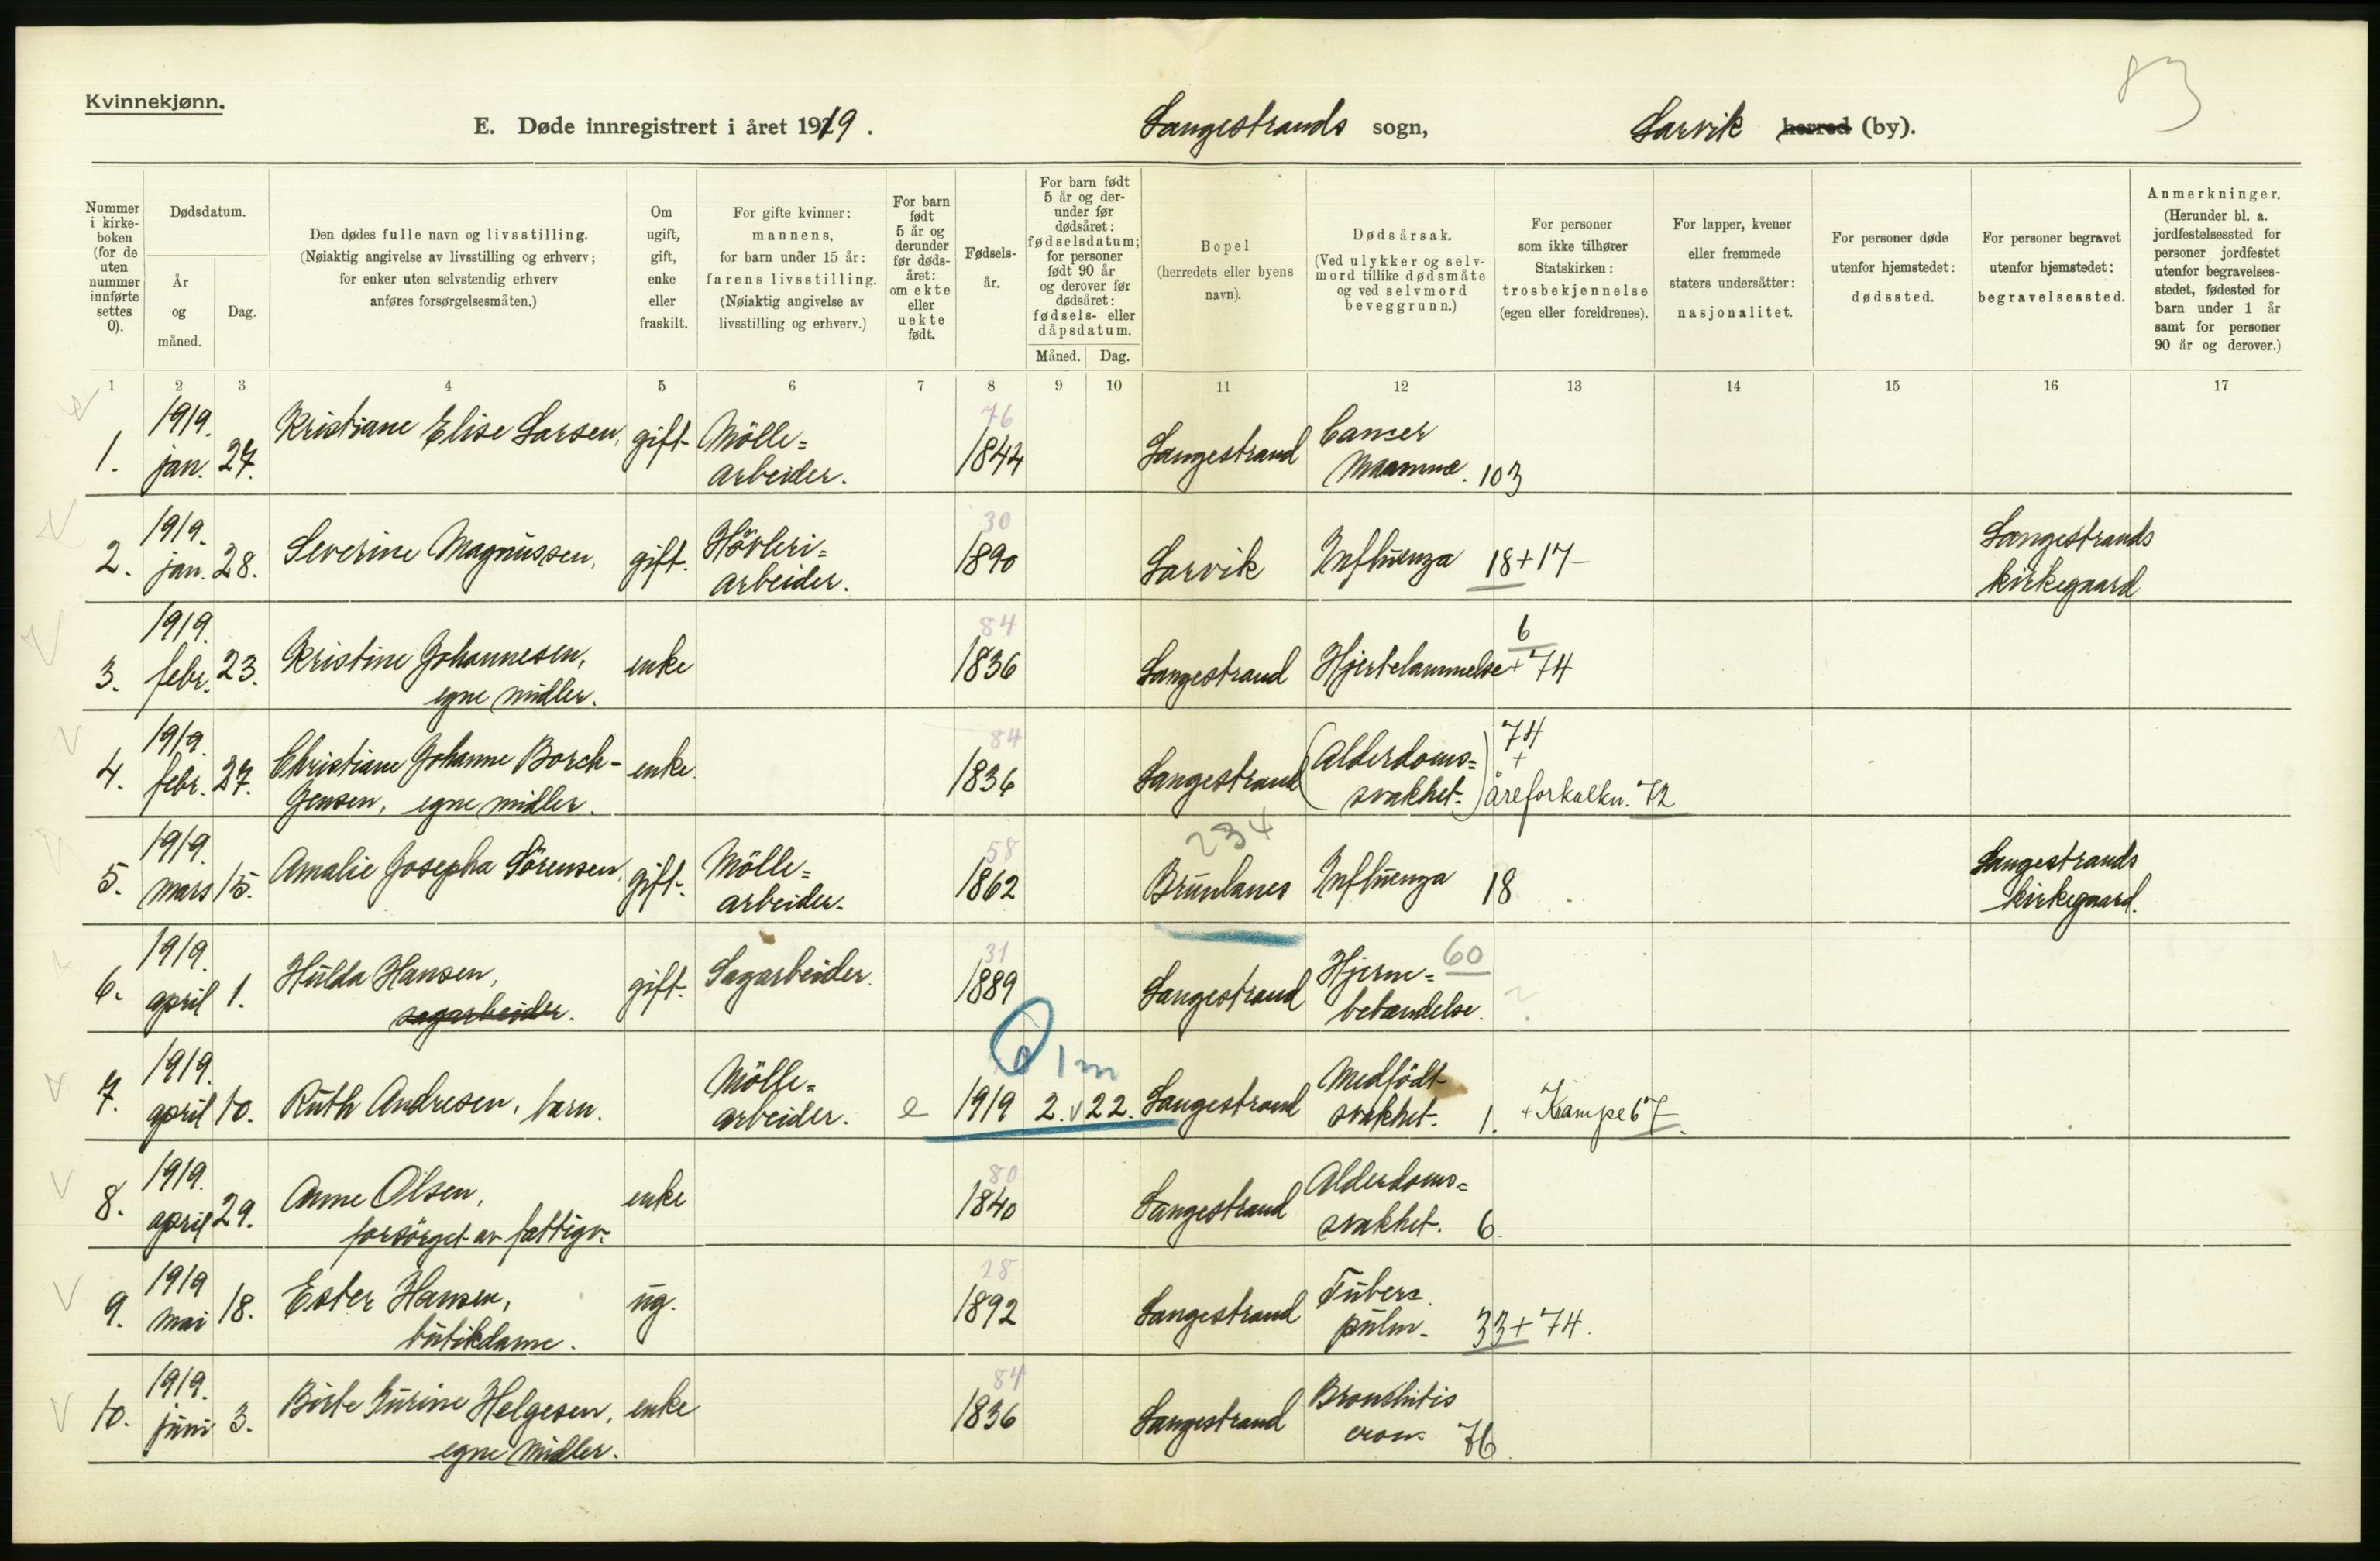 83
Kvinnekjønn.
E. Døde innregistrert i året 1919. Langestrands sogn, Larvik herred (by).
Nummer i kirke-boken (for de uten nummer innførte settes 0).
Dødsdatum.
År og måned.
Dag.
Den dødes fulle navn og livsstilling.
(Nøiaktig angivelse av livsstilling og erhverv;
for enker uten selvstendig erhverv
anføres forsørgelsesmåten.)
Om
ugift,
gift,
enke
eller
fraskilt.
For gifte kvinner:
mannens,
for barn under 15 år:
farens livsstilling.
(Nøiaktig angivelse av
livsstilling og erhverv.)
For barn
født
5 år og
derunder
før døds-
året:
om ekte
eller
uekte
født.
Fødsels-
år.
For barn født
5 år og der-
under før
dødsåret:
fødselsdatum;
for personer
født 90 år
og derover før
dødsåret:
fødsels- eller
dåpsdatum.
Måned. Dag.
Bopel
(herredets eller byens
navn).
Dødsårsak.
(Ved ulykker og selv-
mord tillike dødsmåte
og ved selvmord
beveggrunn.)
For personer
som ikke tilhører
Statskirken:
trosbekjennelse
(egen eller foreldrenes).
For lapper, kvener
eller fremmede
staters undersåtter:
nasjonalitet.
For personer døde
utenfor hjemstedet:
dødssted.
For personer begravet
utenfor hjemstedet:
begravelsessted.
Anmerkninger.
(Herunder bl. a.
jordfestelsessted for
personer jordfestet
utenfor begravelses-
stedet, fødested for
barn under 1 år
samt for personer
90 år og derover.)
1 2 3 4 5 6 7 8 9 10 11 12 13 14 15 16 17
1919. 76
1. jan. 27. Kristiane Elise Larsen, gift Mölle= 1844 Langestrand Cancer
arbeider. Mammæ. 103
1919. 30
2. jan. 28. Severine Magnussen, gift. Hövleri= 1890 Larvik Influenza 18+17 Langestrands
arbeider. kirkegaard
1919. 84 6
3. febr. 23. Kristine Johannesen, enke 1836 Langestrand Hjertelammelse + 74
egne midler.
1919. 84 74
4. febr. 27. Christiane Johanne Borch- enke 1836 Langestrand (Alderdoms= +
Jensen, egne midler. svakhet.) åreforkalkn. 72
234
1919. 58
5. mars 15. Amalie Josepha Sörensen, gift. Mölle= 1862 Brunlanes Influenza 18 Langestrands
arbeider. kirkegaard.
1919. 31
6. april 1. Hulda Hansen, gift. Sagarbeider. 1889 Langestrand Hjerne= 60
sagarbeider. betændelse. ?
0 1 m
1919.
7. april 10. Ruth Andresen, barn. Mölle= e 1919 2. 22. Langestrand Medfödt
arbeider. svakhet. 1. + Krampe 67.
1919. 80
8. april 29. Anne Olsen, enke 1840 Langestrand Alderdoms=
forsörget av fattigv. svakhet. 6.
1919 28
9. mai 18. Ester Hansen, ug. 1892 Langestrand Tuberc.
butikdame. pulm. 33+74.
1919. 84
10. juni 3. Birte Gurine Helgesen, enke 1836 Langestrand Bronchitis
egne midler. cron. 76.